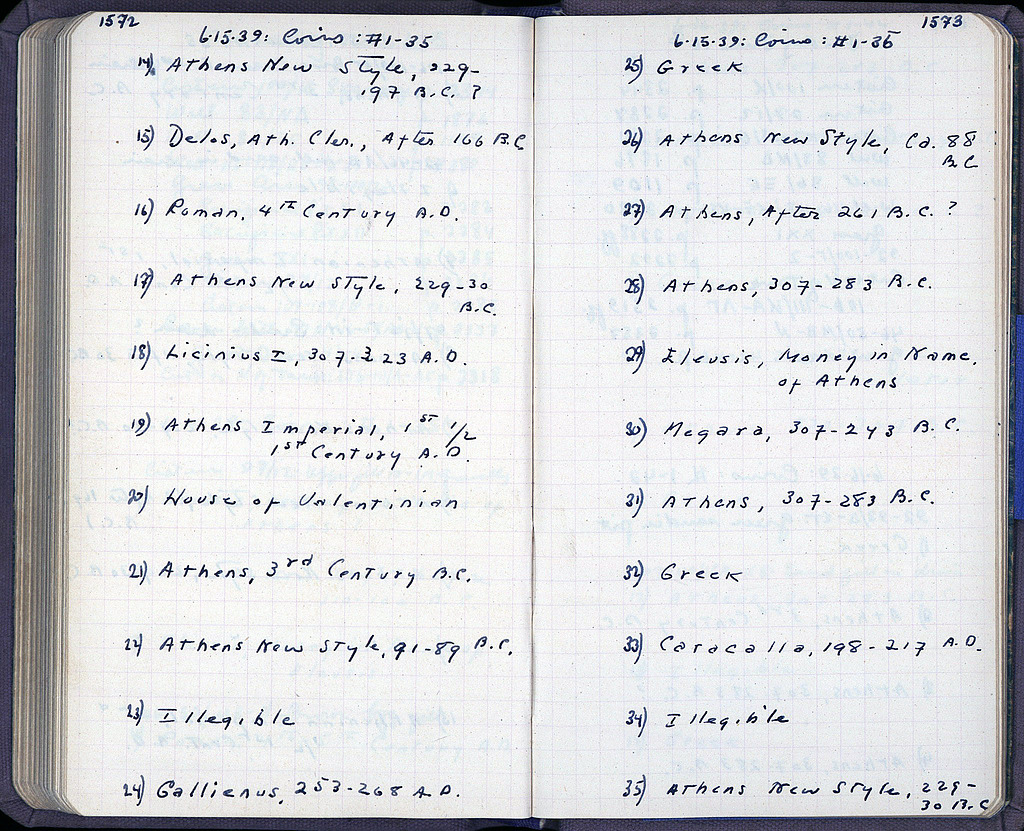 1572
6.15.39: Coins: #1-35
14) Athens New Style, 229-
197 B.C. ?
15) Delos, Ath. Cler., After 166 B.C
16) Roman, 4TH Century A.D.
17) Athens New Style, 229-30
B.C.
18) Licinius I, 307-323 A.D.
19) Athens Imperial, 1ST 1/2
1st Century A.D.
20) House of Valentinian
21) Athens, 3rd Century B.C.
22) Athens New Style, 91-89 B.C.
23) Illegible
24) Gallienus, 253-268 A.D.
1573
6.15.39: Coins: #1-35
25) Greek
26) Athens New Style, Ca. 88
B.C
27) Athens, After 261 B.C. ?
28) Athens, 307-283 B.C.
29) Eleusis, Money in Name,
of Athens
30) Megara, 307-243 B.C.
31) Athens, 307-283 B.C.
32) Greek
33) Caracalla, 198-217 A.D.
34) Illegible
35) Athens New Style, 229-
30 B.C